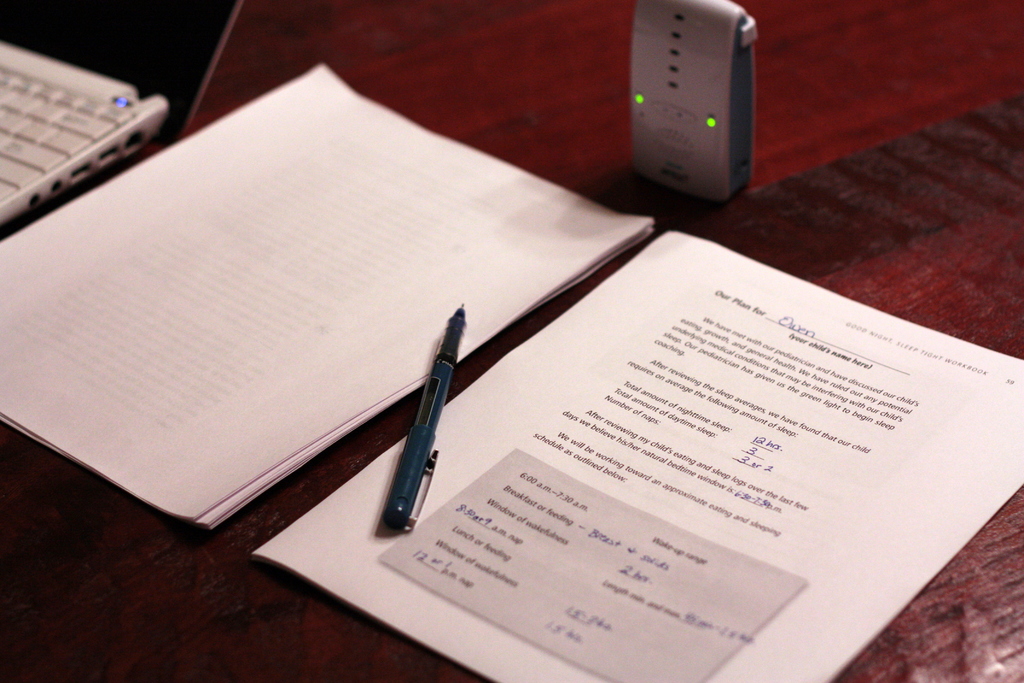 GOOD NIGHT, SLEEP TIGHT WORKBOOK 59
Our Plan for Owen
(your child's name here)
We have met with our pediatrician and have discussed our child's
eating, growth, and general health. We have ruled out any potential
underlying medical conditions that may be interfering with our child's
sleep. Our pediatrician has given us the green light to begin sleep
coaching.
After reviewing the sleep averages, we have found that our child
requires on average the following amount of sleep:
Total amount of nighttime sleep: 12 hrs.
Total amount of daytime sleep: 3
Number of naps: 3 or 2
After reviewing my child's eating and sleep logs over the last few
days we believe his/her natural bedtime window is 6:30-7:30 p.m.
We will be working toward an approximate eating and sleeping
schedule as outlined below:
6:00 a.m.–7:30 a.m. Wake-up range
Breakfast or feeding – Breast + solids
Window of wakefulness 2 hrs.
a.m. nap Length min. and max.
Lunch or feeding
Window of wakefulness 1.5-2 hrs.
12 or 1 p.m. nap 1.5 hr.